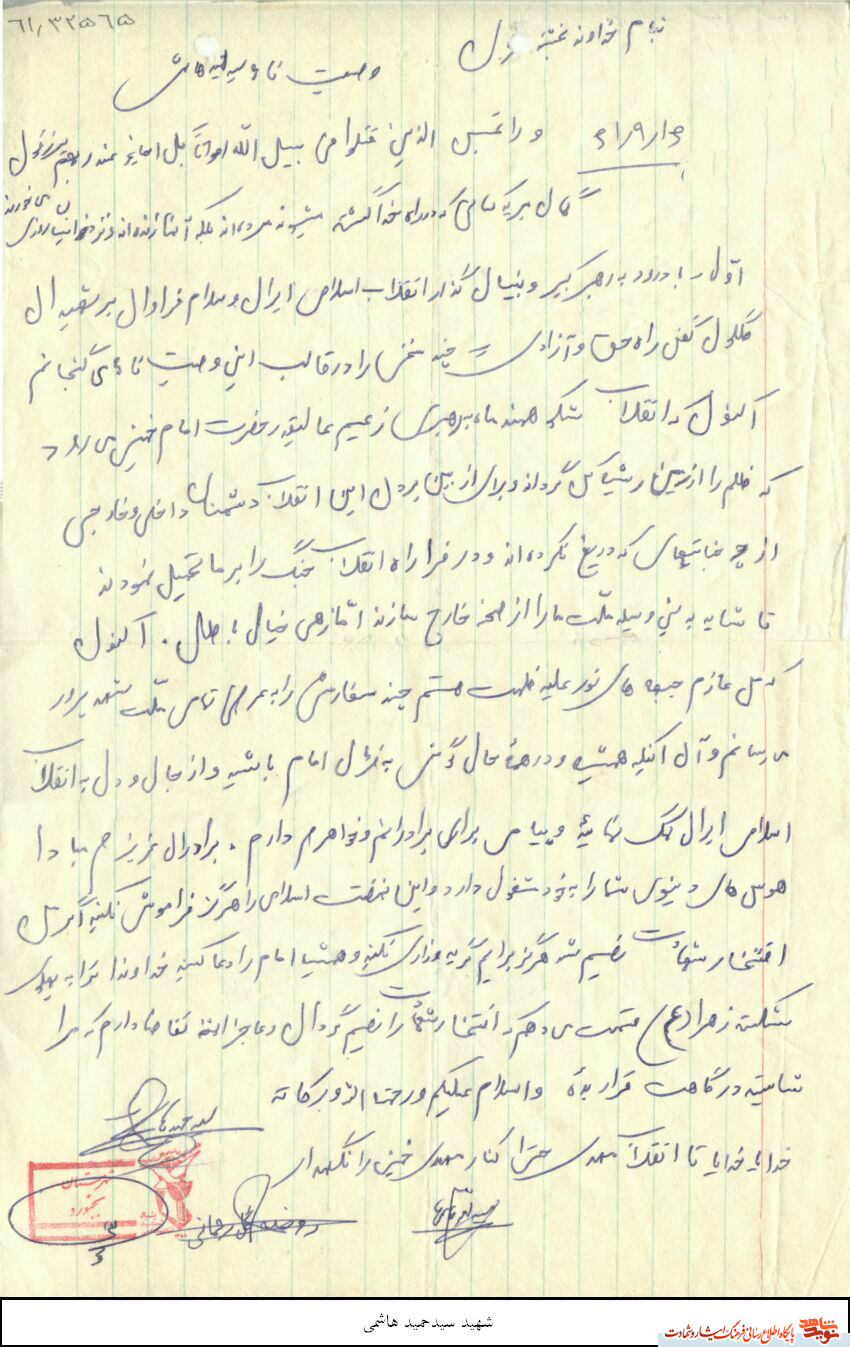 ۶۱٫۳۲۵۶۵
بنام خداوند بخشنده
وصیت نامه سید حمید هاشمی
۶۱/۹/۶ ولا تحسبن الذین قتلوا فی سبیل الله امواتاً بل احیاء عند ربهم یرزقون
گمان مبرید کسانی که در راه خدا کشته میشوند مرده‌اند بلکه آنها زنده‌اند و نزد خدایشان روزی می خورند
اول با درود به رهبر کبیر و بنیان گذار انقلاب اسلامی ایران و سلام فراوان بر شهیدان
گلگون کفن راه حق و آزادی چند سخنی را در قالب این وصیت نامه می گنجانم
اکنون که انقلاب شکوهمند ما به رهبری زعیم عالیقدر حضرت امام خمینی می رود
که ظلم را از زمین ریشه کن گرداند و برای از بین بردن این انقلاب دشمنان داخلی و خارجی
از چه خباثتهای که دریغ نکرده‌اند و در فرا راه انقلاب جنگ را بر ما تحمیل نمودند
تا شاید بدینوسیله ملت ما را از صحنه خارج سازند اما زهی خیال باطل . اکنون
که من عازم جبهه های نور علیه ظلمت هستم چند سفارش را به عرض تمامی ملت شهید پرور
می رسانم و آن اینکه همیشه و در همهٔ حال گوش به فرمان امام باشید و از جان و دل به انقلاب
اسلامی ایران کمک نمائید و پیامی برای برادرانم و خواهرم دارم . برادران عزیزم مبادا
هوس های دنیوی شما را بخود مشغول دارد و این نهضت اسلامی را هرگز فراموش نکنید اگر من
افتخار شهادت نصیبم شد هرگز برایم گریه و زاری نکنید و همیشه امام را دعا کنید خداوندا ترا به پهلوی
شکسته زهرا (ع) قسمت می دهم که افتخار شهادت را نصیبم گردان و عاجزانه تقاضا دارم که مرا
شایسته درگاهت قرار بده والسلام علیکم و رحمة الله و برکاته
خدایا خدایا تا انقلاب مهدی حتی کنار مهدی خمینی را نگهدار
شهرستان
بجنورد
شهید سیدحمید هاشمی
نوید شاهد
پایگاه اطلاع رسانی فرهنگ ایثار و شهادت